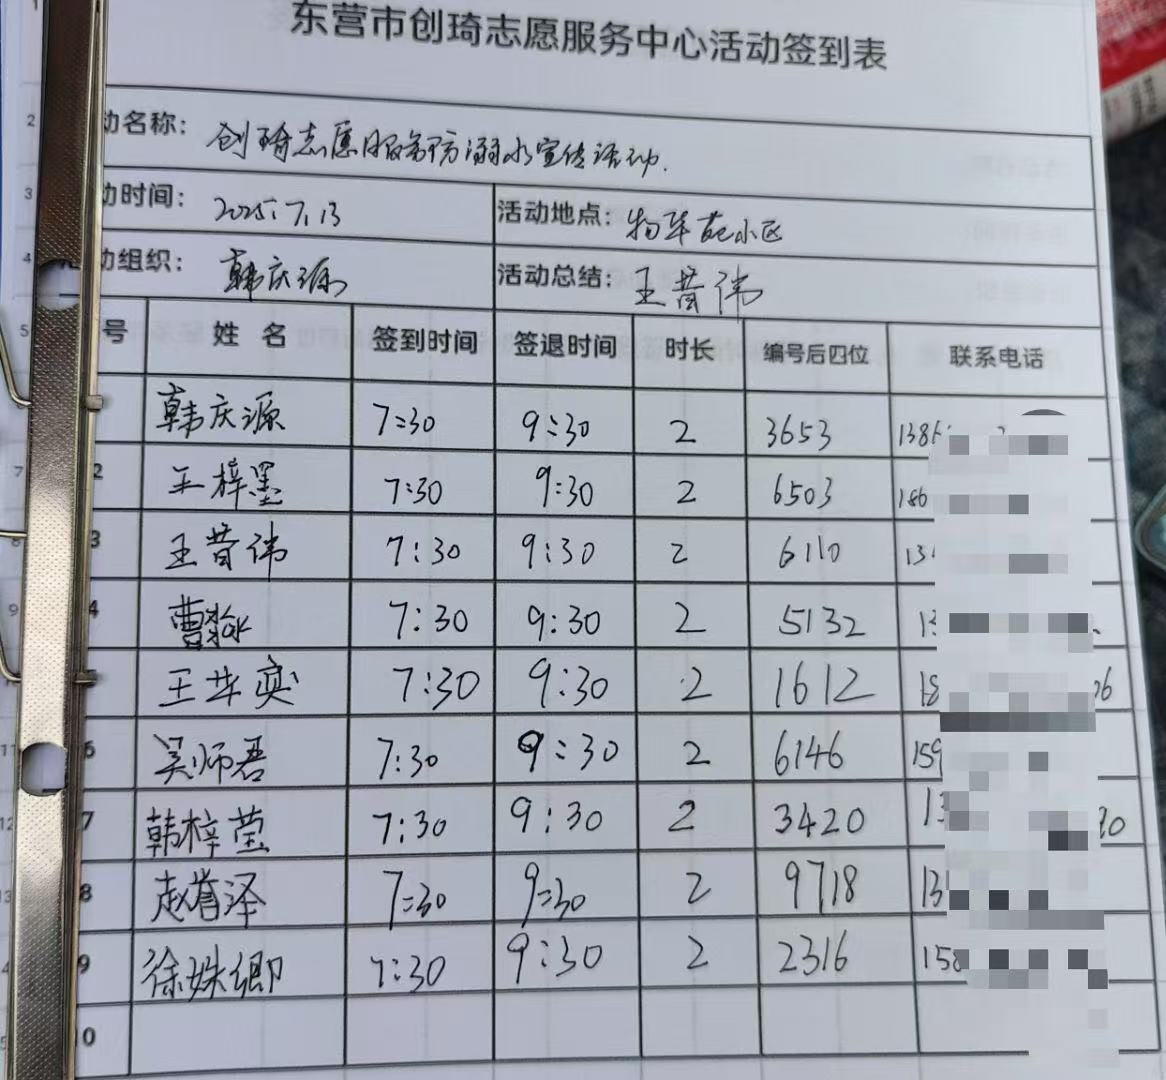 东营市创琦志愿服务中心活动签到表
动名称： 创琦志愿服务防溺水宣传活动.
动时间： 2025.7.13 活动地点： 物华苑小区
动组织： 韩庆源 活动总结： 王昔伟
号 姓 名 签到时间 签退时间 时长 编号后四位 联系电话
韩庆源 7:30 9:30 2 3653 138
2 王梓墨 7:30 9:30 2 6503 186
3 王昔伟 7:30 9:30 2 6110 13
4 曹 7:30 9:30 2 5132 13
王华奕 7:30 9:30 2 1612 18 06
6 吴师君 7:30 9:30 2 6146 159
7 韩梓莹 7:30 9:30 2 3420 13 90
8 赵誉泽 7:30 9:30 2 9718 13
9 徐姝卿 7:30 9:30 2 2316 158
10